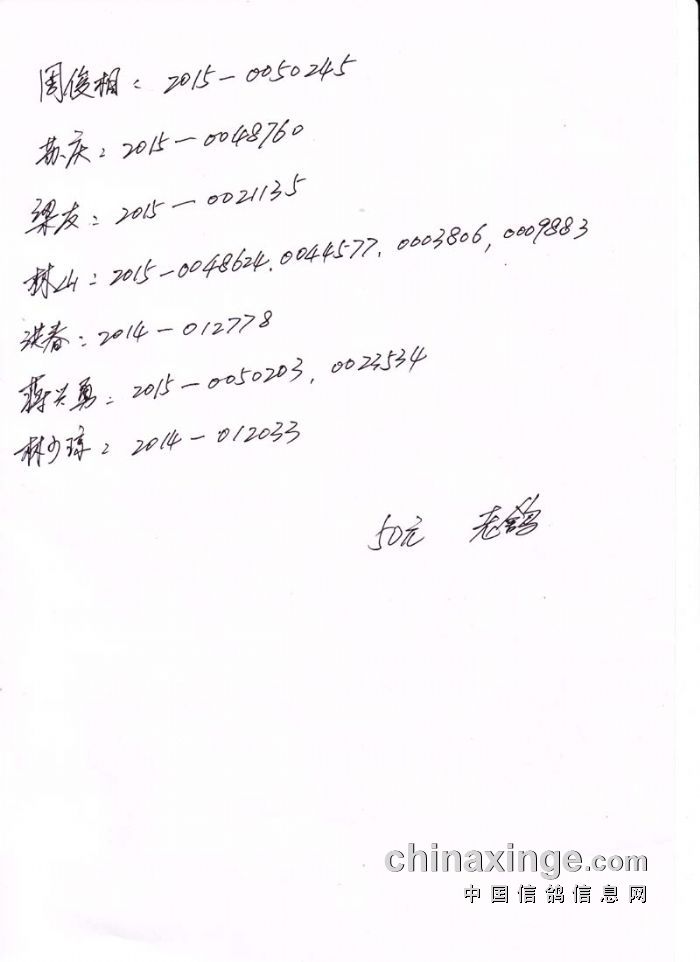 周俊相：2015-0050245
苏庆：2015-0048760
梁友：2015-0021135
林山：2015-0048624.0044577.0003806,0009883
洪春：2014-012778
蒋兴勇：2015-0050203,0023534
林少琼：2014-012033
50元 老鸽
chinaxinge.com
中国信鸽信息网